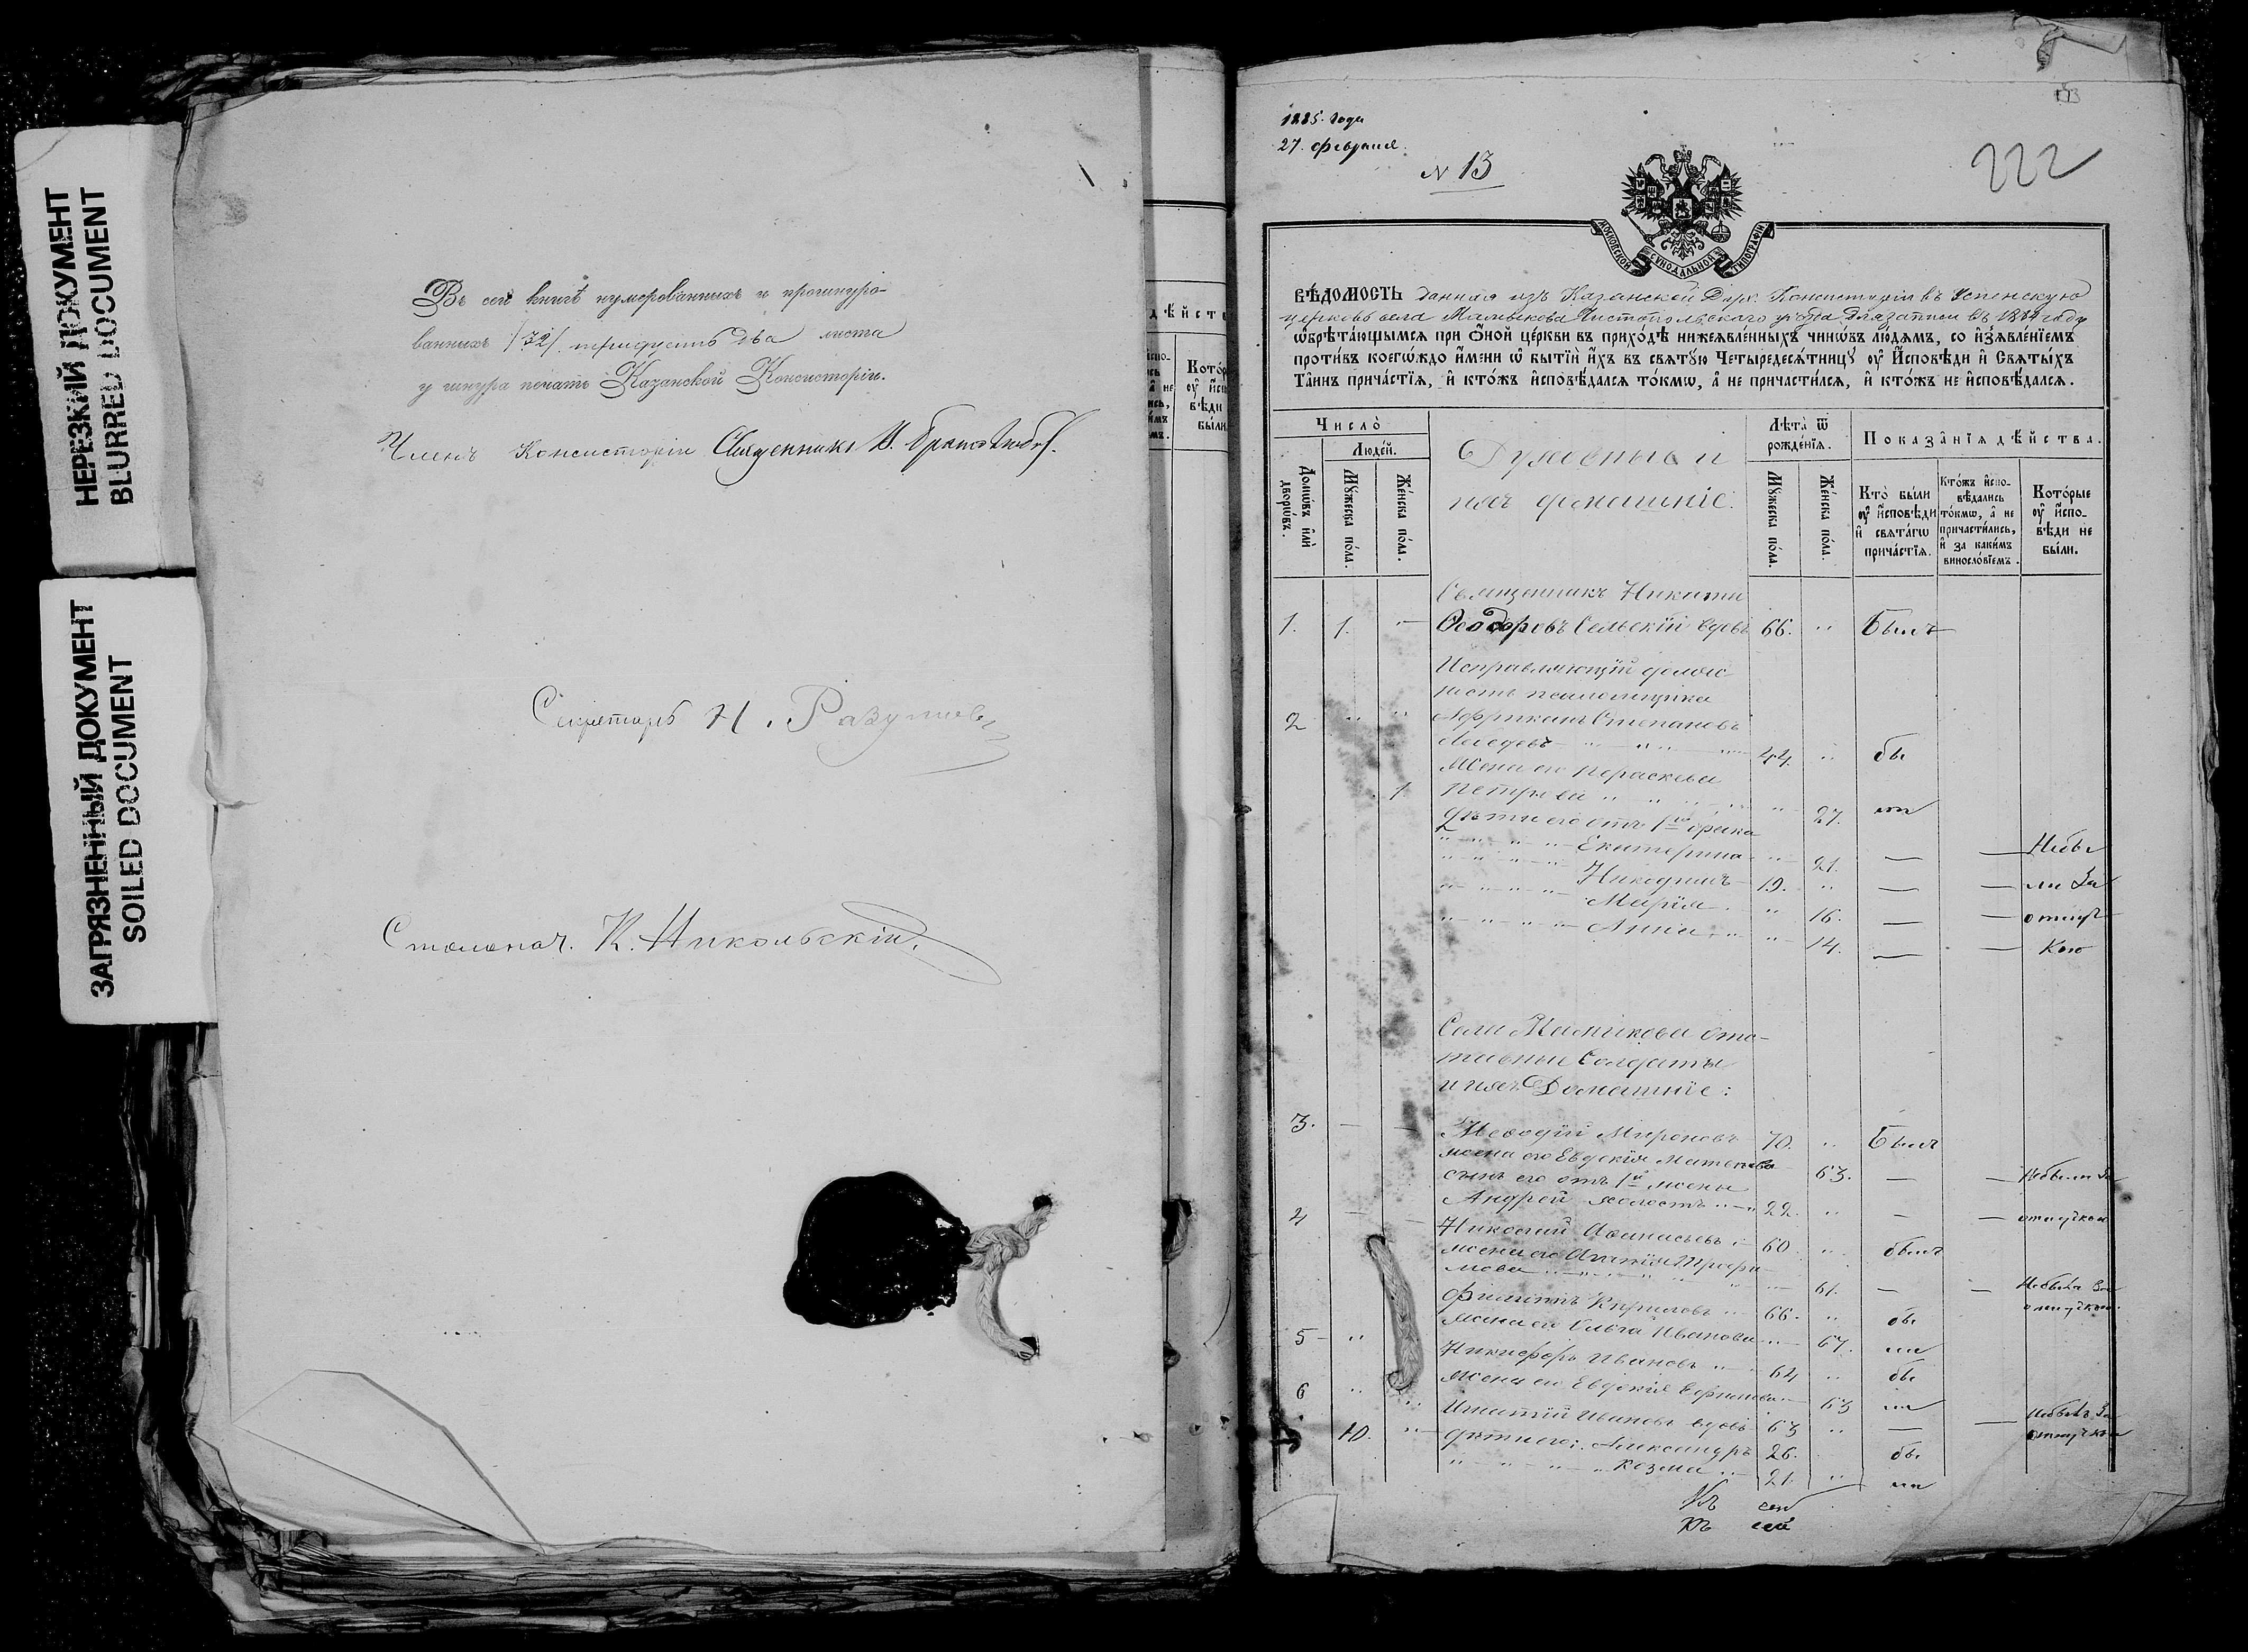 НЕРЕЗКИЙ ДОКУМЕНТ
BLURRED DOCUMENT
ЗАГРЯЗНЕННЫЙ ДОКУМЕНТ
SOILED DOCUMENT
Въ сей книгѣ нумерованныхъ и прошнуро-
ванныхъ /32/ тридцать два листа
у шнура печать Казанской Консисторіи.
Членъ Консисторіи Священникъ
Секретарь Н. Разумовъ
Столонач. К. Никольскій.
1885 года
27 февраля.
N 13
222
МОСКОВСКОЙ СѴНОДАЛЬНОЙ ТИПОГРАФІИ
ВѢДОМОСТЬ данная изъ Казанской Дух. Консисторіи въ Успенскую
церковь села Мамыкова Чистопольскаго уѣзда для записи въ 1884 году
ѡбрѣта́ющымсѧ при ѻ҆́ной це́ркви въ прихо́дѣ нижеѧвле́нныхъ чинѡ́въ лю́демъ, со и҆з̾ѧвле́нїемъ
про́тивъ коегѡ́ждо и҆́мени ѡ҆ бытїѝ и҆́хъ въ свѧту́ю Четыредесѧ́тницу ᲂу҆ И҆́сповѣди и҆ Свѧты́хъ
Та̑инъ прича́стїѧ, и҆ кто́жъ и҆сповѣ́далсѧ то́кмѡ, а҆ не причасти́лсѧ, и҆ кто́жъ не и҆сповѣ́далсѧ.
Число̀
Люде́й.
Домѡ́въ и҆лѝ дворѡ́въ.
Мꙋ́жеска по́ла.
Же́нска по́ла.
Духовныя и
ихъ домашніе.
Лѣта̀ ѿ рожде́нїѧ.
Мꙋ́жеска по́ла.
Же́нска по́ла.
Показа̑нїѧ дѣ́йства.
Кто̀ бы́ли ᲂу҆ и҆́сповѣди и҆ свѧта́гѡ прича́стїѧ.
Кто́жъ и҆сповѣ́дались то́кмѡ, а҆ не причасти́лись, и҆ за каки́мъ виносло́вїемъ.
Кото́рые ᲂу҆ и҆́сповѣди не бы́ли.
Священникъ Никита
1. 1. — Ѳеодоровъ Сельскій вдовъ 66. " Былъ
Исправляющій долж-
ность псаломщика
2 " " Африканъ Степановъ
Лебедевъ 44. " бы
Жена его Параскева
1 Петрова " 27. ли
дѣти его отъ 1го брака
Екатерина " 21. — — Небы
Никодимъ 19. " — — ли за
Марія " 16. — — отлуч
Анна " 14. — — кою
Села Мамыкова отс-
тавные Солдаты
и ихъ Домашніе:
3. — — Меѳодій Мироновъ 70. " Былъ
жена его Евдокія Матвѣева 63. — — Небыли за
сынъ его отъ 1й жены
Андрей холостъ 22. " — — отлучкою
4 — — Николай Аѳанасьевъ 60 " былъ
жена его Агаѳія Трофи-
мова 61. — — Небыла за
отлучкою.
Филиппъ Кириловъ 66. " бы
5 — " жена его Ольга Иванова " 67. ли
Никифоръ Ивановъ 64 " бы
6 " " жена его Евдокія 63 ли
Игнатій Ивановъ вдовъ 63 " — — Небылъ за
10. " дѣти его: Александръ 26. бы отлучкою
Козма 21. " ли